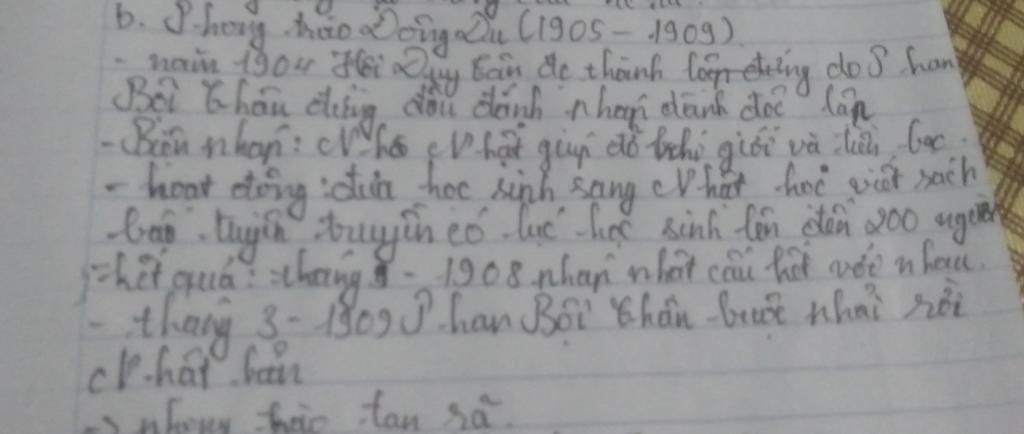 b. Phong trào Đông Du (1905 - 1909)
- năm 1904 Hội Duy Tân đc thành lập đứng do Phan
Bội Châu đứng đầu đánh nhạp dành đôc lập
- Biên nhap: Nhờ Nhật giúp đỡ khi giới và tiền bạc
- hoạt động: đưa học sinh sang Nhật học viết sách
báo tuyên truyền có lục học sinh lên đến 200 người
=> kết quả: tháng 9 - 1908 nhap nhât câu kết với nhau
- tháng 3 - 1909 Phan Bội Châu buộc nhải rời
Nhật bản
=> phong trào tan rã